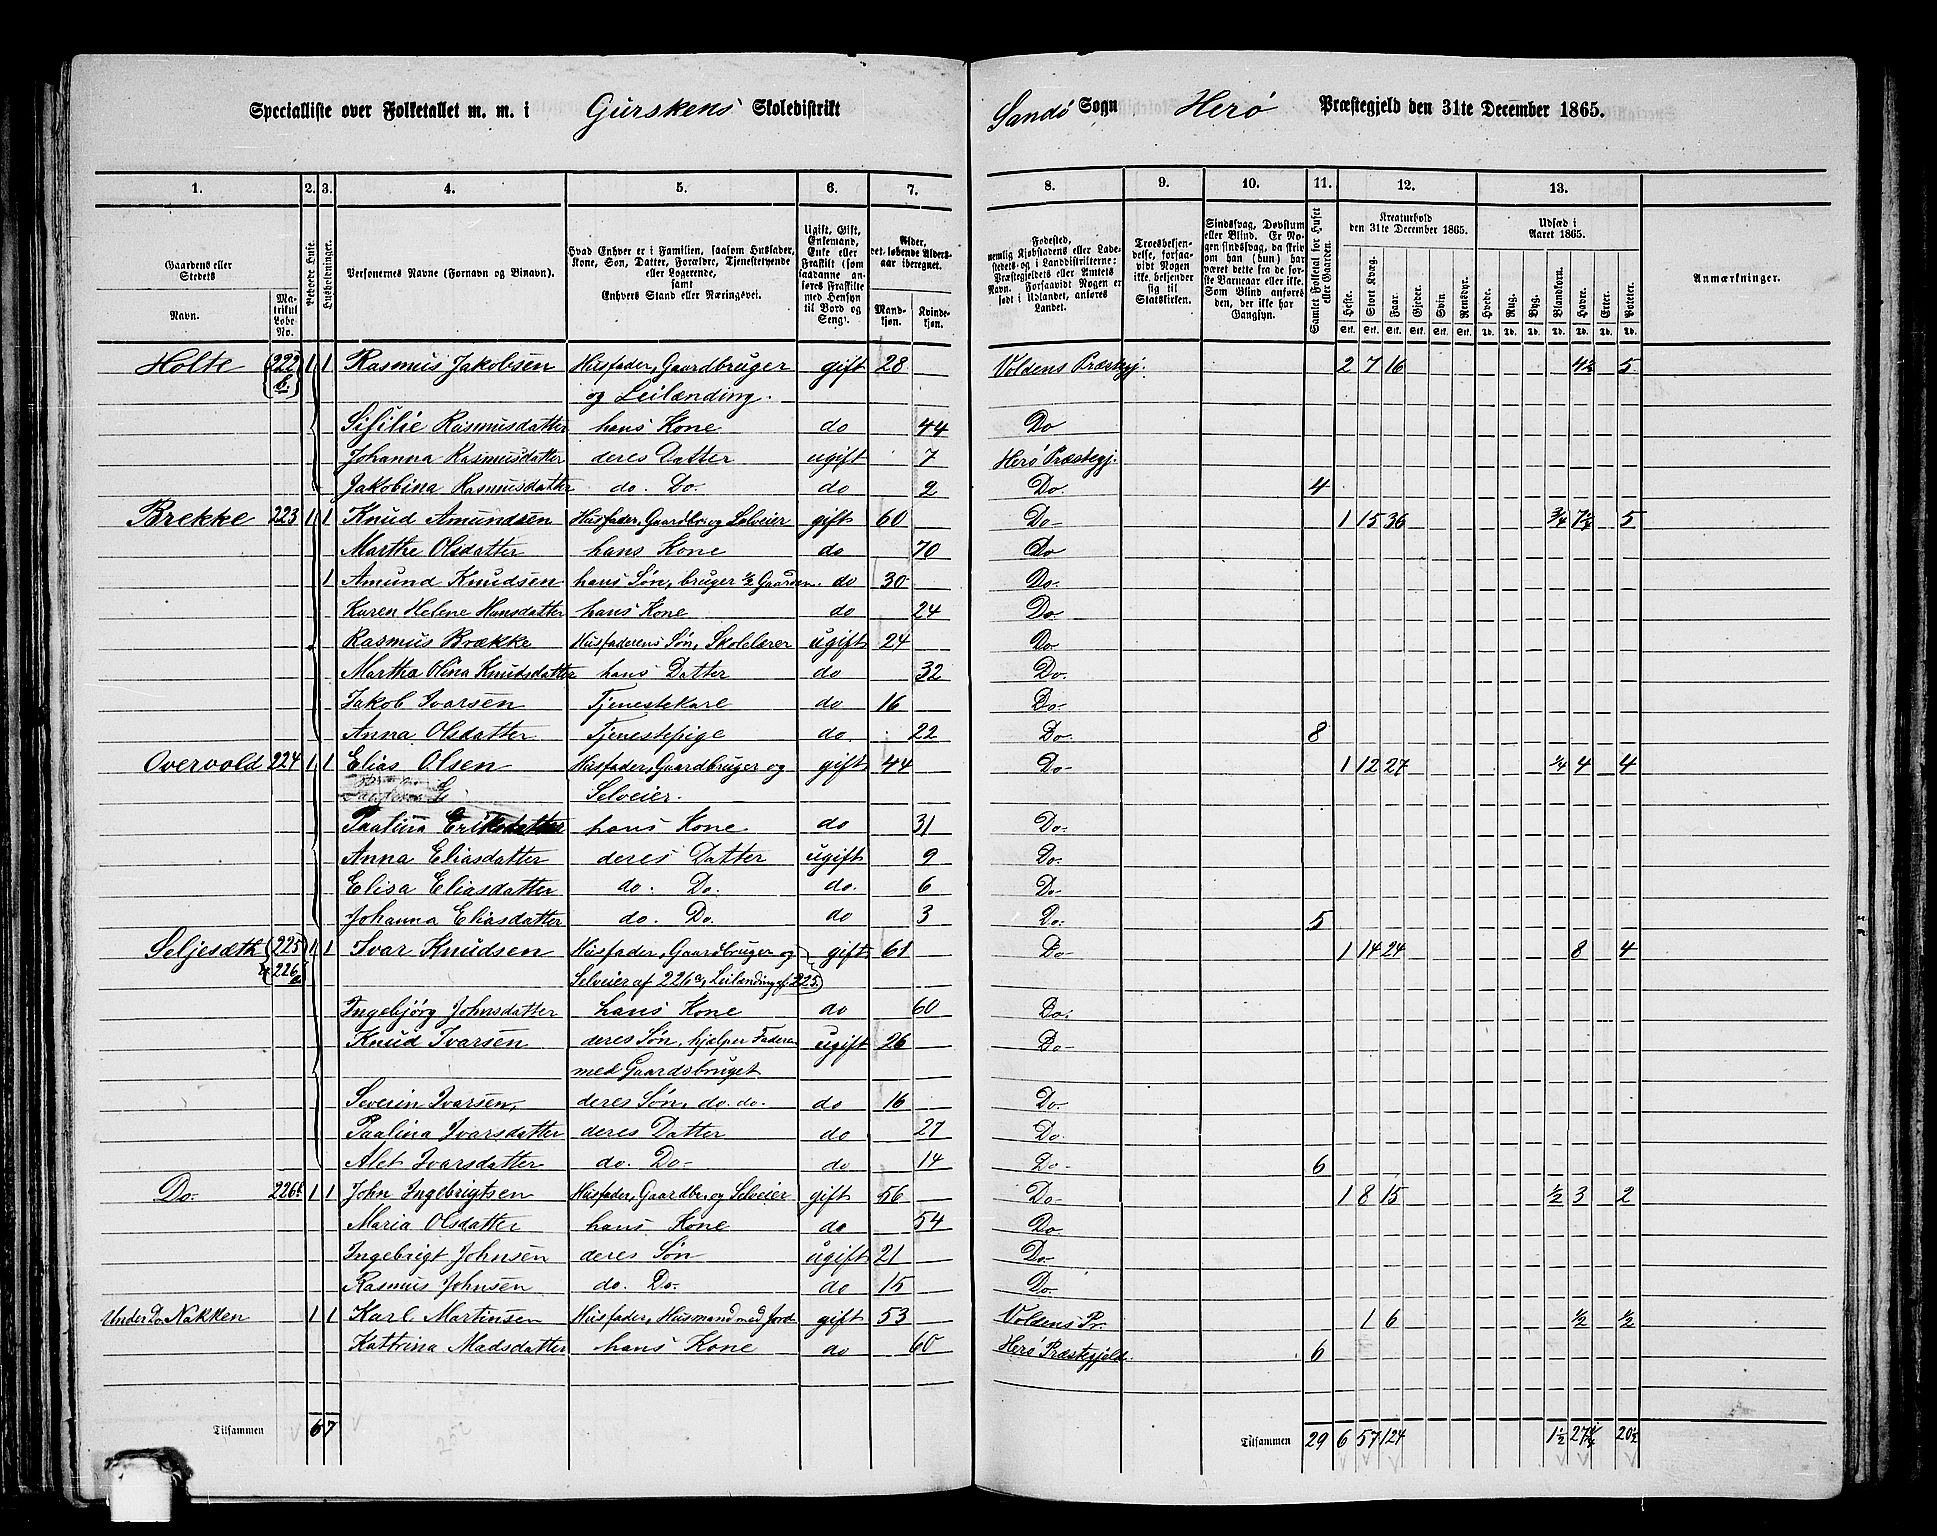 Specialliste over Folketallet m. m. i Gurskens Skoledistrikt Sandø Sogn Herø Præstegjeld den 31te December 1865.
1. 2. 3. 4. 5. 6. 7. 8. 9. 10. 11. 12. 13.
Gaardens eller Stedets Navn. Matrikul Løbe-No.
Beboede Huse.
Husholdninger.
Personernes Navne (Fornavn og Binavn).
Hvad Enhver er i Familien, saasom Husfader, Kone, Søn, Datter, Forældre, Tjenestetyende eller Logerende, samt Enhvers Stand eller Næringsvei.
Ugift, Gift, Enkemand, Enke eller Fraskilt (saadanne anføres Fraskilte med Hensyn til Bord og Seng).
Alder, det løbende Aldersaar iberegnet. Mandkjøn. Kvindekjøn.
Fødested, nemlig Kjøbstadens eller Ladestedets og i Landdistrikterne: Præstegjeldets eller Amtets Navn. Forsaavidt Nogen er født i Udlandet, anføres Landet.
Troesbekjendelse, forsaavidt Nogen ikke bekjender sig til Statskirken.
Sindssvag, Døvstum eller Blind. Er Nogen sindssvag, da skrives om han (hun) har været dette fra de første Barneaar eller ikke. Som Blind anføres den, der ikke har Gangsyn.
Samlet Folketal for Huset eller Gaarden.
Kreaturhold den 31te December 1865. Heste. Stort Kvæg. Faar. Gjeder. Svin. Rensdyr.
Udsæd i Aaret 1865. Hvede. Rug. Byg. Blandkorn. Havre. Erter. Poteter.
Anmærkninger.
Holte 222 b. 1 1 Rasmus Jakobsen Husfader, Gaardbruger gift 28 Voldens Præstegj. 2 7 16 4½ 5
og Leilænding.
Sifilie Rasmusdatter hans Kone do 44 Do
Johanna Rasmusdatter deres Datter ugift 7 Herø Præstegj.
Jakobina Rasmusdatter do. Do. do 2 Do. 4
Brekke 223 1 1 Knud Amundsen Husfader, Gaardbr. og Selveier gift 60 Do- 1 15 36 ¾ 7½ 5
Marthe Olsdatter hans Kone do 70 Do
1 Amund Knudsen hans Søn, bruger ½ Gaarden. do 30 Do.
Karen Helene Hansdatter hans Kone do 24 Do.
Rasmus Brække Husfaderens Søn, Skolelærer ugift 24 Do
Martha Olina Knudsdatter hans Datter do 32 Do.
Jakob Ivarsen Tjenestekarl do 16 Do-
Anna Olsdatter Tjenestepige do. 22 Do. 8
Overvold 224 1 1 Elias Olsen Husfader, Gaardbruger og gift 44 Do- 1 12 27 ¼ 4 4
Selveier.
Paalina Eriksdatter hans Kone do 31 Do.
Anna Eliasdatter deres Datter ugift 9 Do.
Elisa Eliasdatter do. Do. do. 6 Do-
Johanna Eliasdatter do. Do. do 3 Do. 5
Seljesæth 225 & 226a 1 1 Ivar Knudsen Husfader, Gaardbruger og gift 61 Do- 1 14 24 8 4
Selveier af 226a, Leilænding af 225.
Ingebjørg Johnsdatter hans Kone do 60 Do.
Knud Ivarsen deres Søn, hjælper Faderen ugift 26 Do-
med Gaardsbruget
Severin Ivarsen, deres Søn, do. do. do 16 Do.
Paalina Ivarsdatter deres Datter do 27 Do.
Alet Ivarsdatter do. Do- do 14 Do- 6
Do- 226b 1 1 John Ingebrigtsen Husfader, Gaardbr. og Selveier gift 56 Do- 1 8 15 ½ 3 2
Maria Olsdatter hans Kone do 54 Do.
Ingebrigt Johnsen deres Søn ugift 21 Do-
Rasmus Johnsen do. Do- do 15 Do.
Under Do. Nakken 1 1 Karl Martinsen Husfader, Husmand med Jord gift 53 Voldens Pr. 1 6 ½ ½
Kattrina Madsdatter hans Kone do 60 Herø Præstegjeld. 6
Tilsammen 6 7 Tilsammen 29 6 57 124 1½ 20½
252